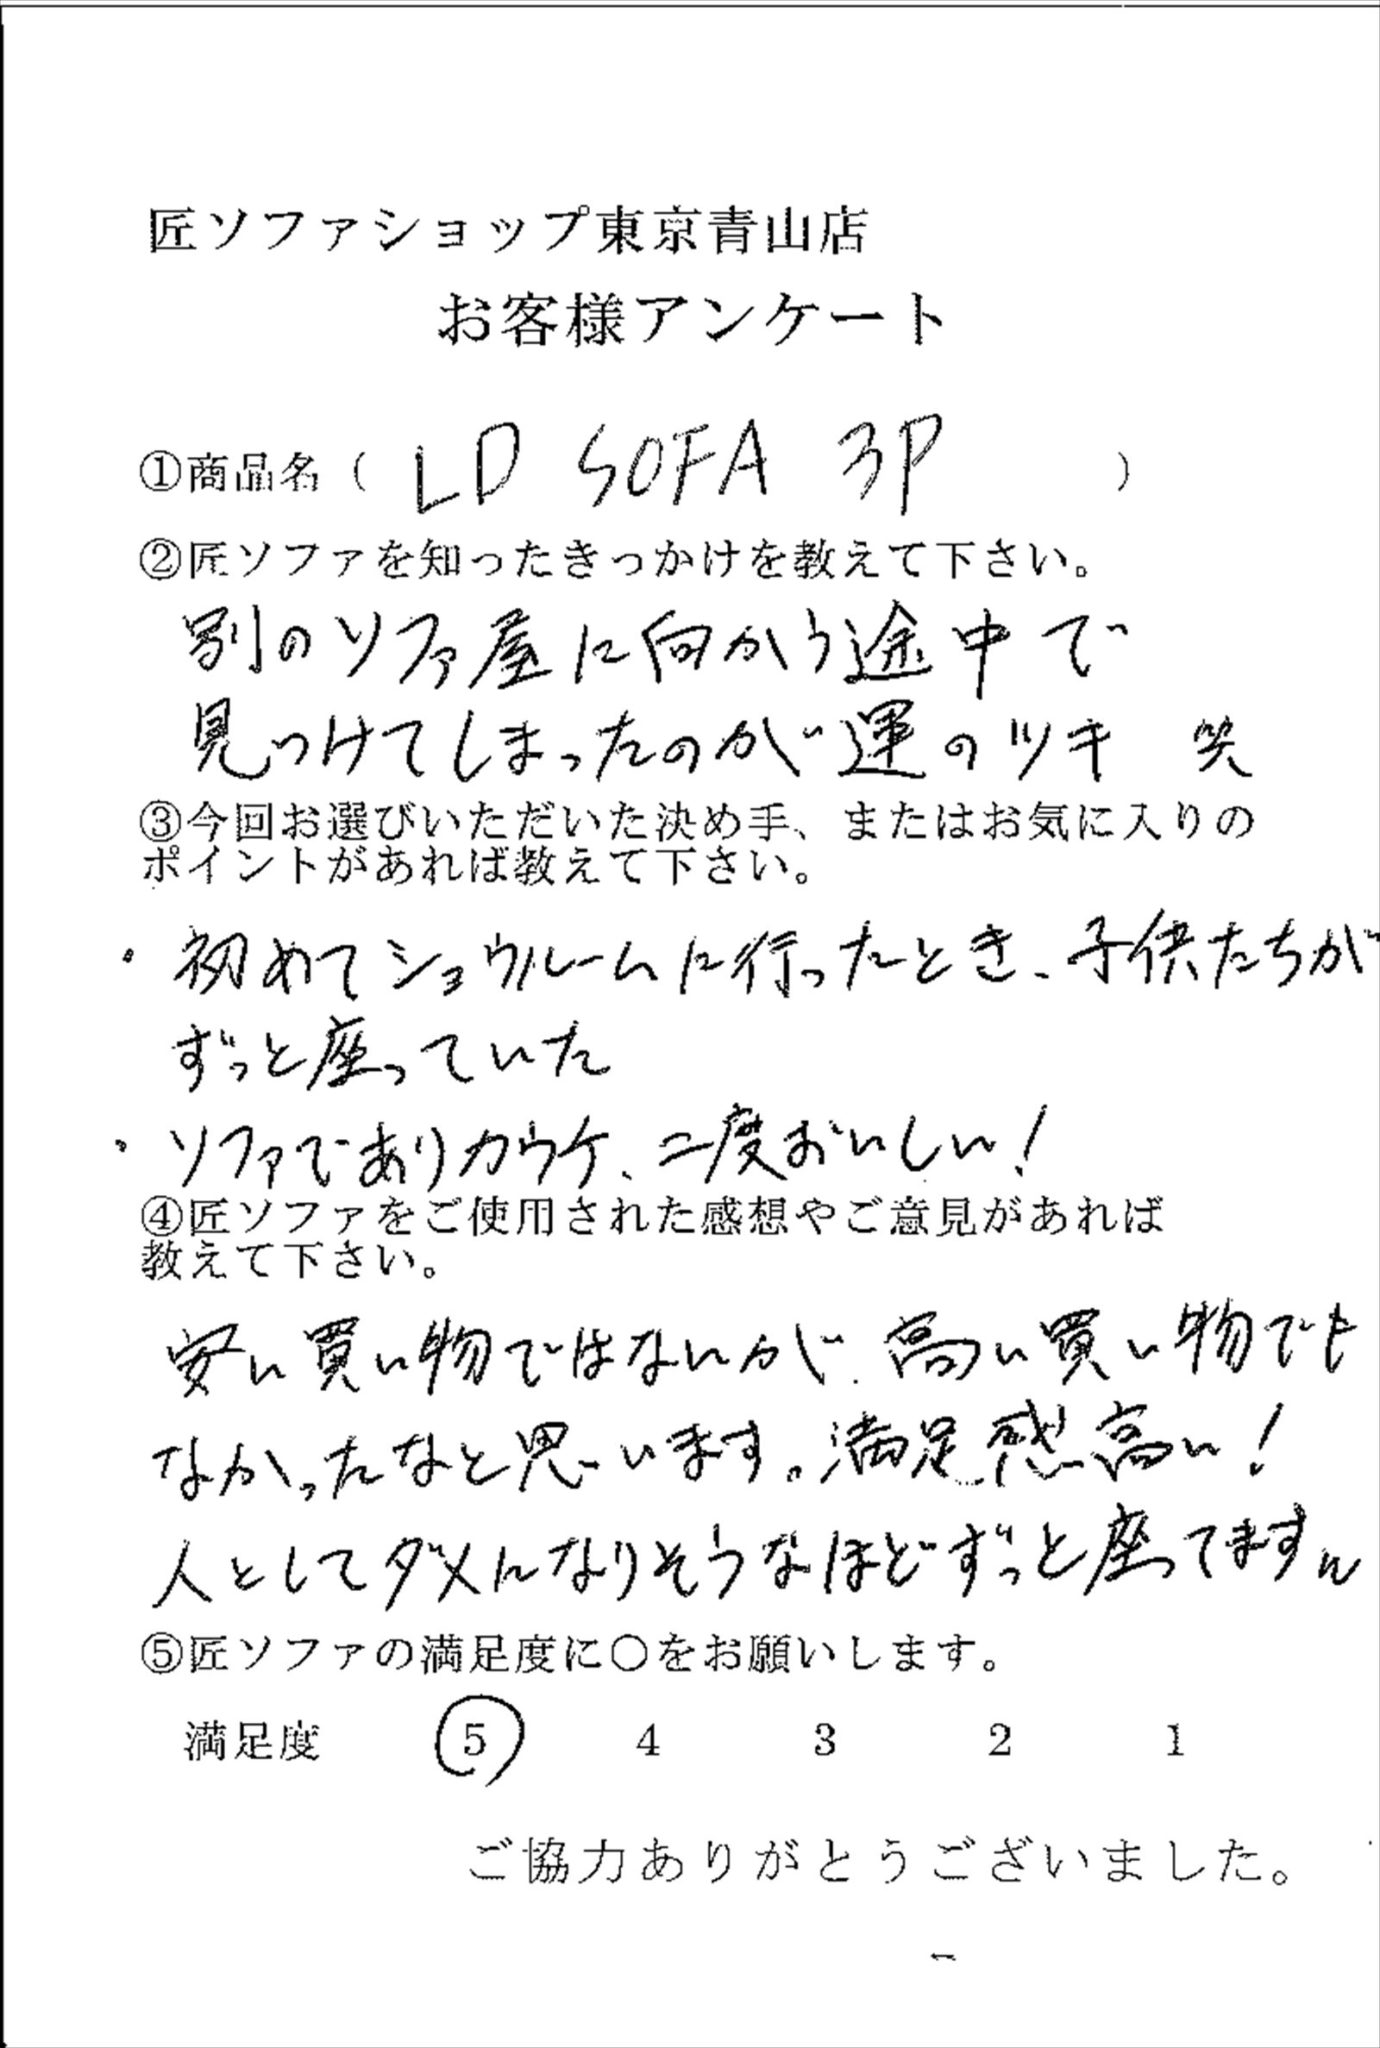 匠ソファショップ東京青山店
お客様アンケート
①商品名（ LD SOFA 3P ）
②匠ソファを知ったきっかけを教えて下さい。
別のソファ屋に向かう途中で
見つけてしまったのが運のツキ 笑
③今回お選びいただいた決め手、またはお気に入りの
ポイントがあれば教えて下さい。
・初めてショウルームに行ったとき、子供たちが
ずっと座っていた
・ソファでありカウケ、二度おいしい!
④匠ソファをご使用された感想やご意見があれば
教えて下さい。
安い買い物ではないが、高い買い物でも
なかったなと思います。満足感高い!
人としてダメになりそうなほどずっと座ってます
⑤匠ソファの満足度に○をお願いします。
満足度 5 4 3 2 1
ご協力ありがとうございました。